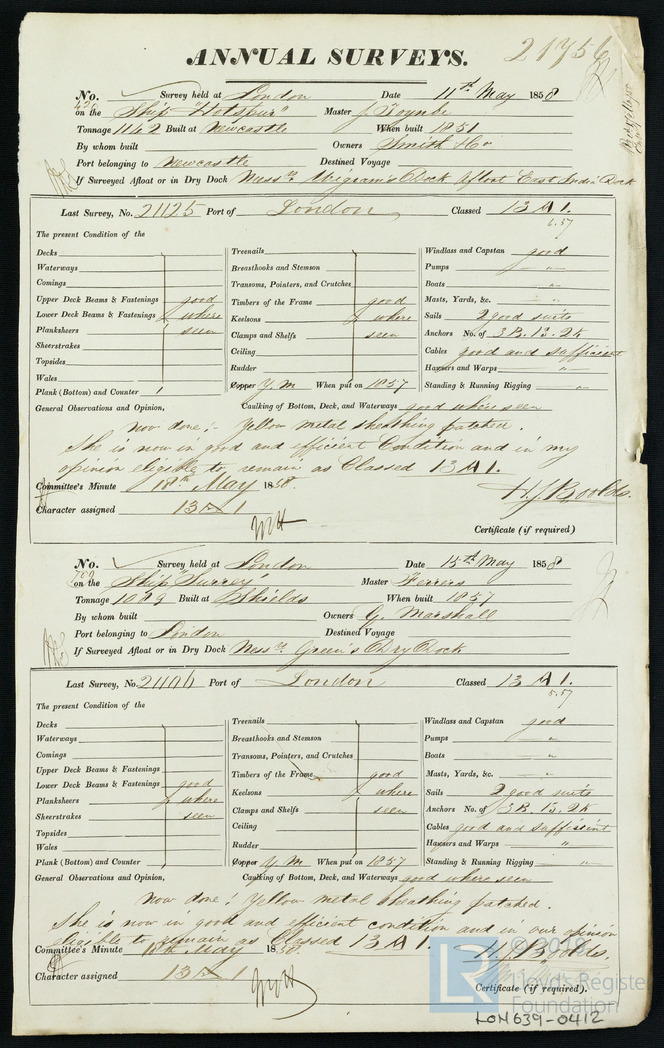 21756
ANNUAL SURVEYS.
No. Survey held at London Date 11th May 1858
on the Ship "Hotspur" Master J. Toynbe
Tonnage 1142 Built at Newcastle When built 1851
By whom built Owners Smith & Co
Port belonging to Newcastle Destined Voyage
If Surveyed Afloat or in Dry Dock Messrs. Wigram's Dock Afloat East India Dock
Last Survey, No. 21125 Port of London Classed 13 A 1.
6.57
The present Condition of the
Decks Treenails Windlass and Capstan good
Waterways Breasthooks and Stemson Pumps "
Comings Transoms, Pointers, and Crutches Boats "
Upper Deck Beams & Fastenings good Timbers of the Frame good Masts, Yards, &c. "
Lower Deck Beams & Fastenings where Keelsons where Sails 2 good suits
Planksheers seen Clamps and Shelfs seen Anchors No. of 3 B. 1 S. 2 K
Sheerstrakes Ceiling Cables good and sufficient
Topsides Rudder Hawsers and Warps "
Wales Copper Y. M When put on 1857 Standing & Running Rigging "
Plank (Bottom) and Counter
General Observations and Opinion, Caulking of Bottom, Deck, and Waterways good where seen
Now done:- Yellow metal sheathing patched.
She is now in good and efficient Condition and in my
opinion eligible to remain as Classed 13 A 1.
Committee's Minute 18th May 1858.
H. J. Boolds.
Character assigned 13 A 1
Certificate (if required)
No. Survey held at London Date 15th May 1858
on the Ship "Surrey" Master Ferrers
Tonnage 1089 Built at Shields When built 1857
By whom built Owners G. Marshall
Port belonging to London Destined Voyage
If Surveyed Afloat or in Dry Dock Messrs. Green's Dry Dock
Last Survey, No. Port of London Classed 13 A 1.
5.57
The present Condition of the
Decks Treenails Windlass and Capstan good
Waterways Breasthooks and Stemson Pumps "
Comings Transoms, Pointers, and Crutches Boats "
Upper Deck Beams & Fastenings Timbers of the Frame good Masts, Yards, &c. "
Lower Deck Beams & Fastenings good Keelsons where Sails 2 good suits
Planksheers where Clamps and Shelfs seen Anchors No. of 3 B. 1 S. 2 K
Sheerstrakes seen Ceiling Cables good and sufficient
Topsides Rudder Hawsers and Warps "
Wales Copper Y. M When put on 1857 Standing & Running Rigging "
Plank (Bottom) and Counter
General Observations and Opinion, Caulking of Bottom, Deck, and Waterways good where seen
Now done: Yellow metal sheathing patched.
She is now in good and efficient condition and in our opinion
eligible to remain as Classed 13 A 1.
Committee's Minute 18th May 1858.
H. J. Boolds.
Character assigned 13 A 1
Certificate (if required).
© 2019
Lloyd's Register
Foundation
LR
LON639-0412